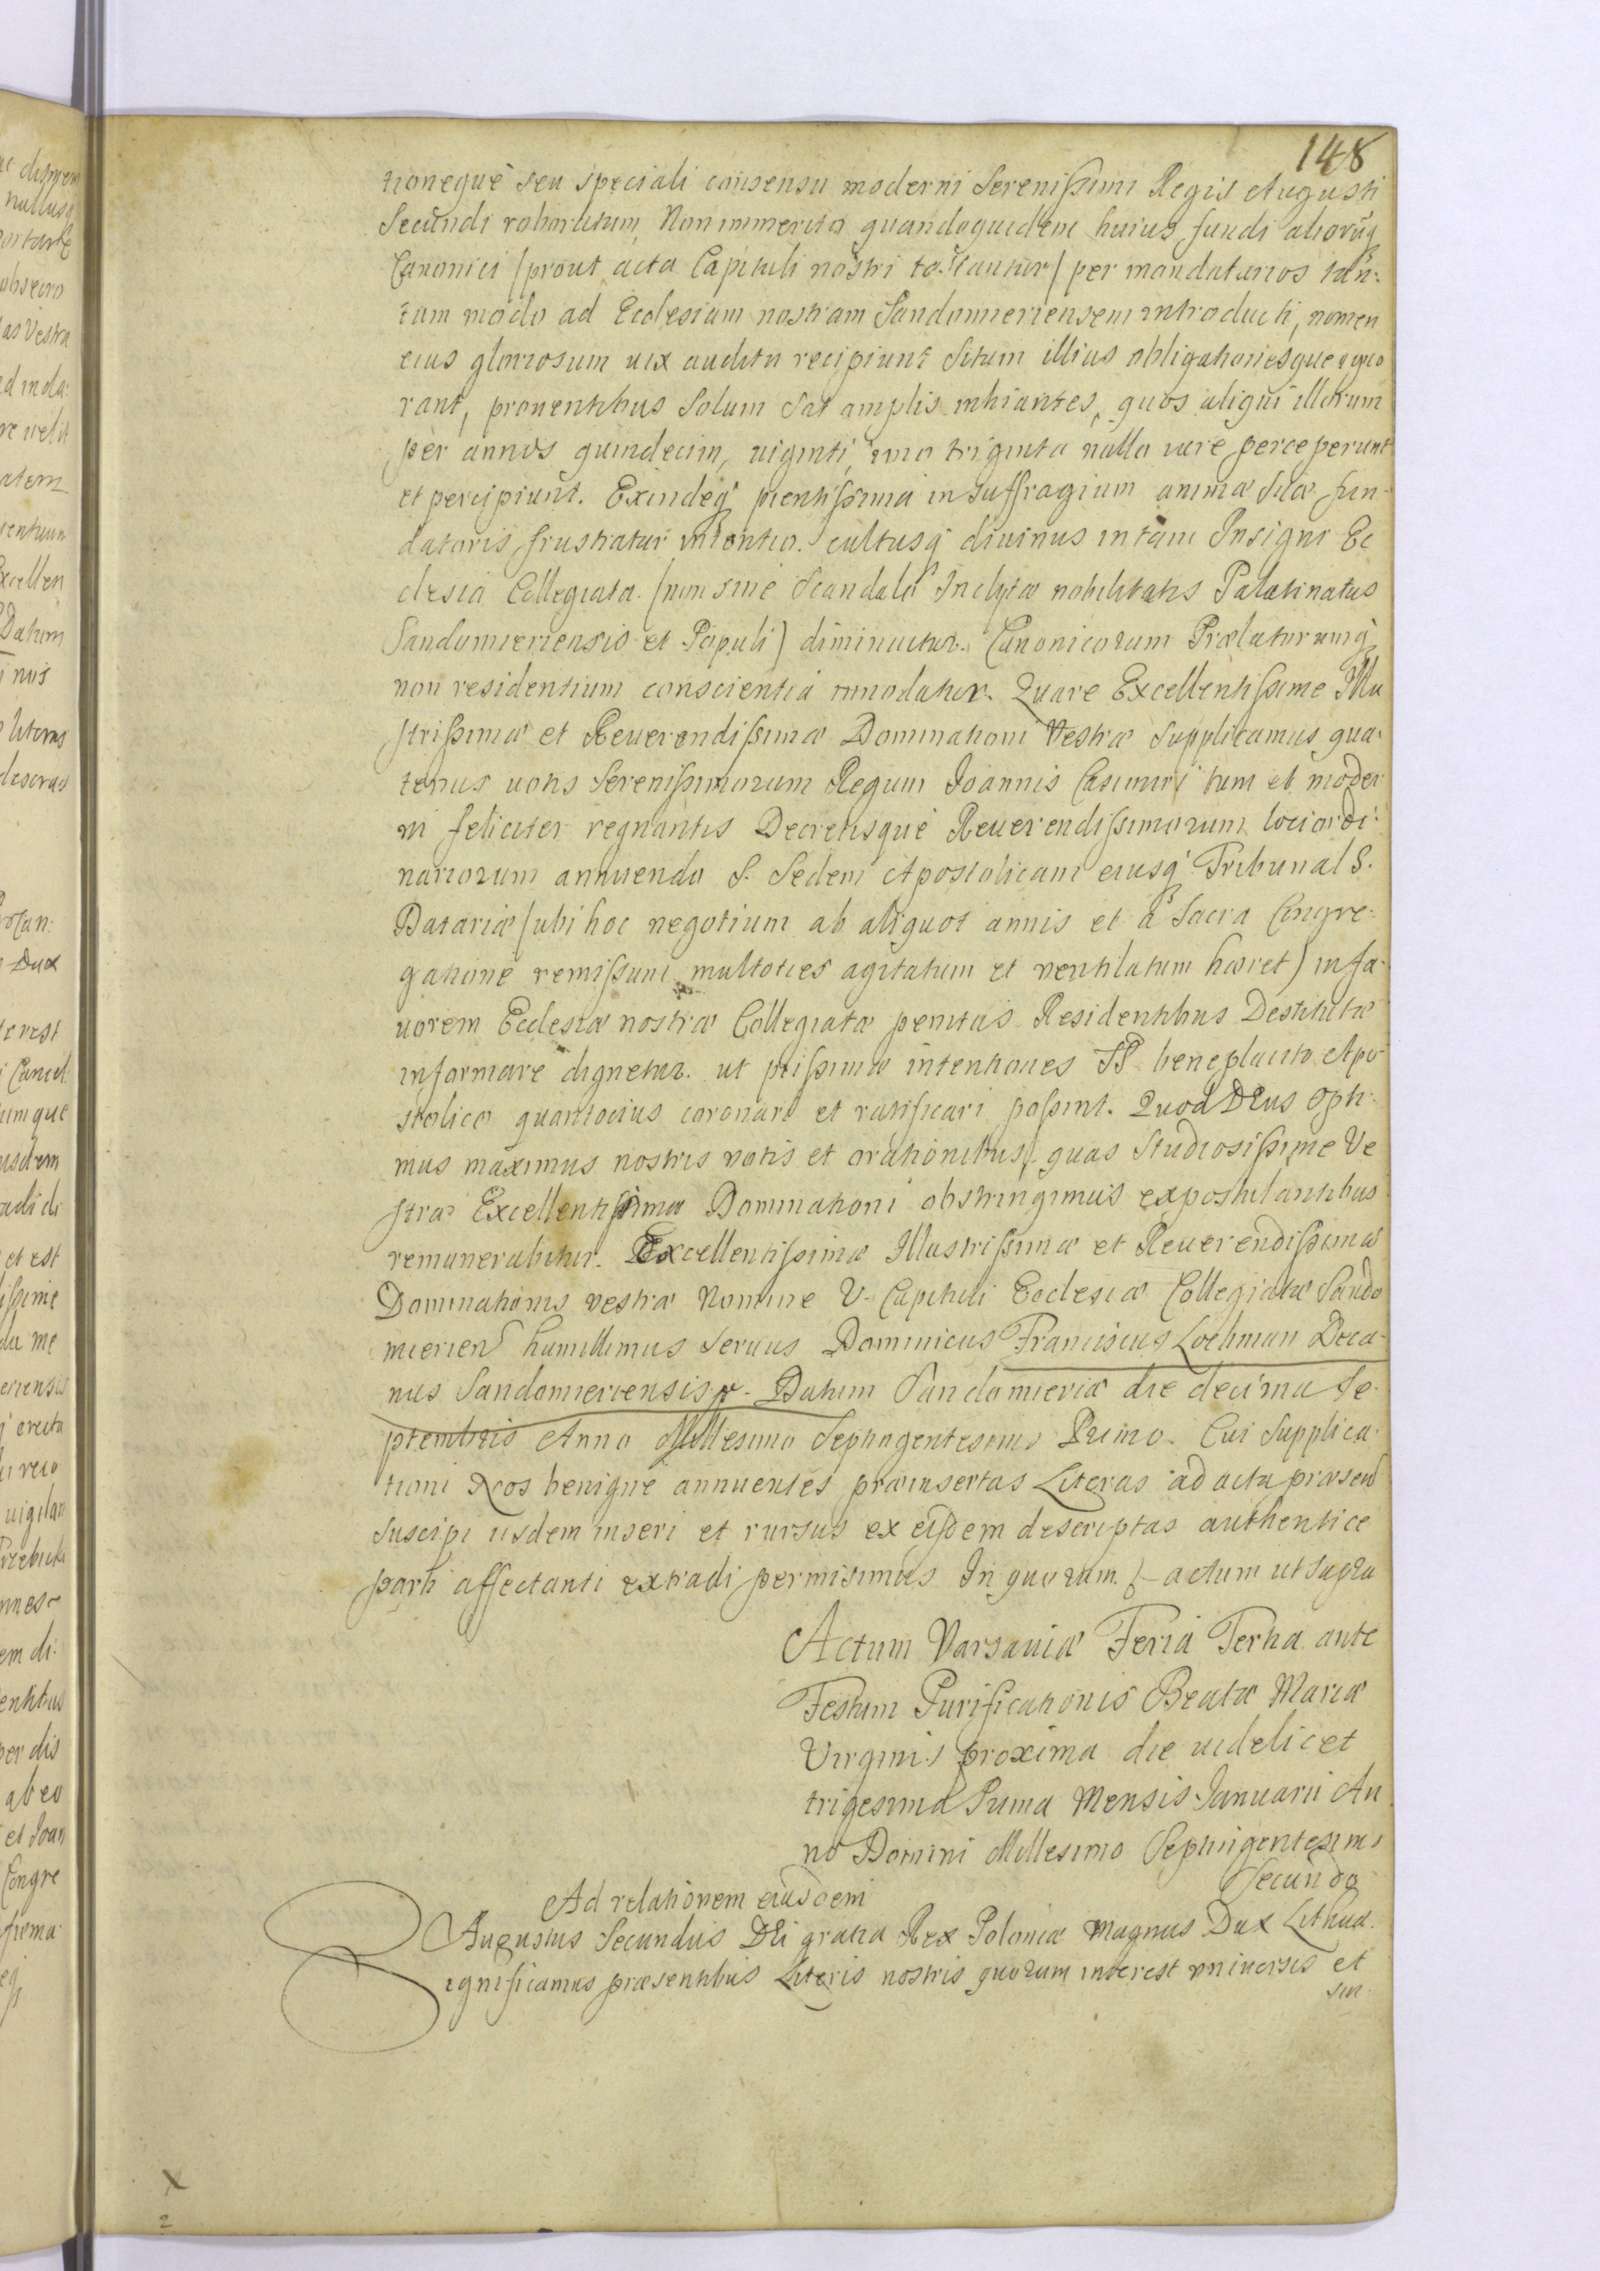 148
tioneque seu speciali consensu moderni Serenissimi Regis Augusti
Secundi roboratum, Non immerito quandoquidem huius fundi aliorūq
Canonici (prout acta Capituli nostri testantur) per mandatarios tan-
tum modo ad Ecclesiam nostram Sandomieriensem introducti, nomen
eius gloriosum uix auditu recipiunt Situm illius obligationesque igno
rant, prouentibus Solum Sat amplis inhiantes, quos aliqui illorum
per annos quindecim, uiginti, imo triginta nullo iure perceperunt
et percipiunt. Exindeq pientissima in Suffragium animæ Suæ fun-
datoris frustratur intentio. cultusq diuinus in tam Insigni Ec
clesia Collegiata (non sine Scandalo Inclytæ nobilitatis Palatinatus
Sandomieriensis et Populi) diminuitur. Canonicorum Prælatorumq
non residentium conscientia innodatur. Quare Excellentissime Illu
strissimæ et Reuerendissimæ Dominationi Vestræ Supplicamus qua-
tenus uotis Serenissimorum Regum Joannis Casimiri tum et moder
ni feliciter regnantis Decretisque Reuerendissimorum loci ordi-
nariorum annuendo S. Sedem Apostolicam eiusq Tribunal S.
Datariæ (ubi hoc negotium ab aliquot annis et a Sacra Congre-
gatione remissum multoties agitatum et ventilatum hæret) in fa-
uorem Ecclesiæ nostræ Collegiatæ penitus Residentibus Destitutæ
informare dignetur. ut piissimæ intentiones SS. beneplacito Apo-
stolico quantocius coronari et ratificari possint. Quod DEus Opti-
mus maximus nostris votis et orationibus, quas Studiosissime Ve
stræ Excellentissimæ Dominationi obstringimus expostulantibus
remunerabitur. Excellentissimæ Illustrissimæ et Reuerendissimæ
Dominationis vestræ Nomine V. Capituli Ecclesiæ Collegiatæ Sando
mierien humillimus Seruus Dominicus Franciscus Lochman Deca-
nus Sandomieriensis Datum Sandomieriæ die decima Se-
ptembris Anno Millesimo Septingentesimo Primo. Cui Supplica-
tioni Nos benigne annuentes præinsertas Literas ad acta præsen
Suscipi iisdem inseri et rursus ex eisdem descriptas authentice
parti affectanti extradi permisimus. In quorum. actum ut supra
Actum Varsauiæ Feria Tertia ante
Festum Purificationis Beatæ Mariæ
Virginis proxima die uidelicet
trigesima Prima Mensis Januarii An
no Domini Millesimo Septingentesimo
Secundo
Ad relationem eiusdem
Augustus Secundus DEi gratia Rex Poloniæ Magnus Dux Lithua.
Significamus præsentibus Literis nostris quorum interest vniuersis et
sin-